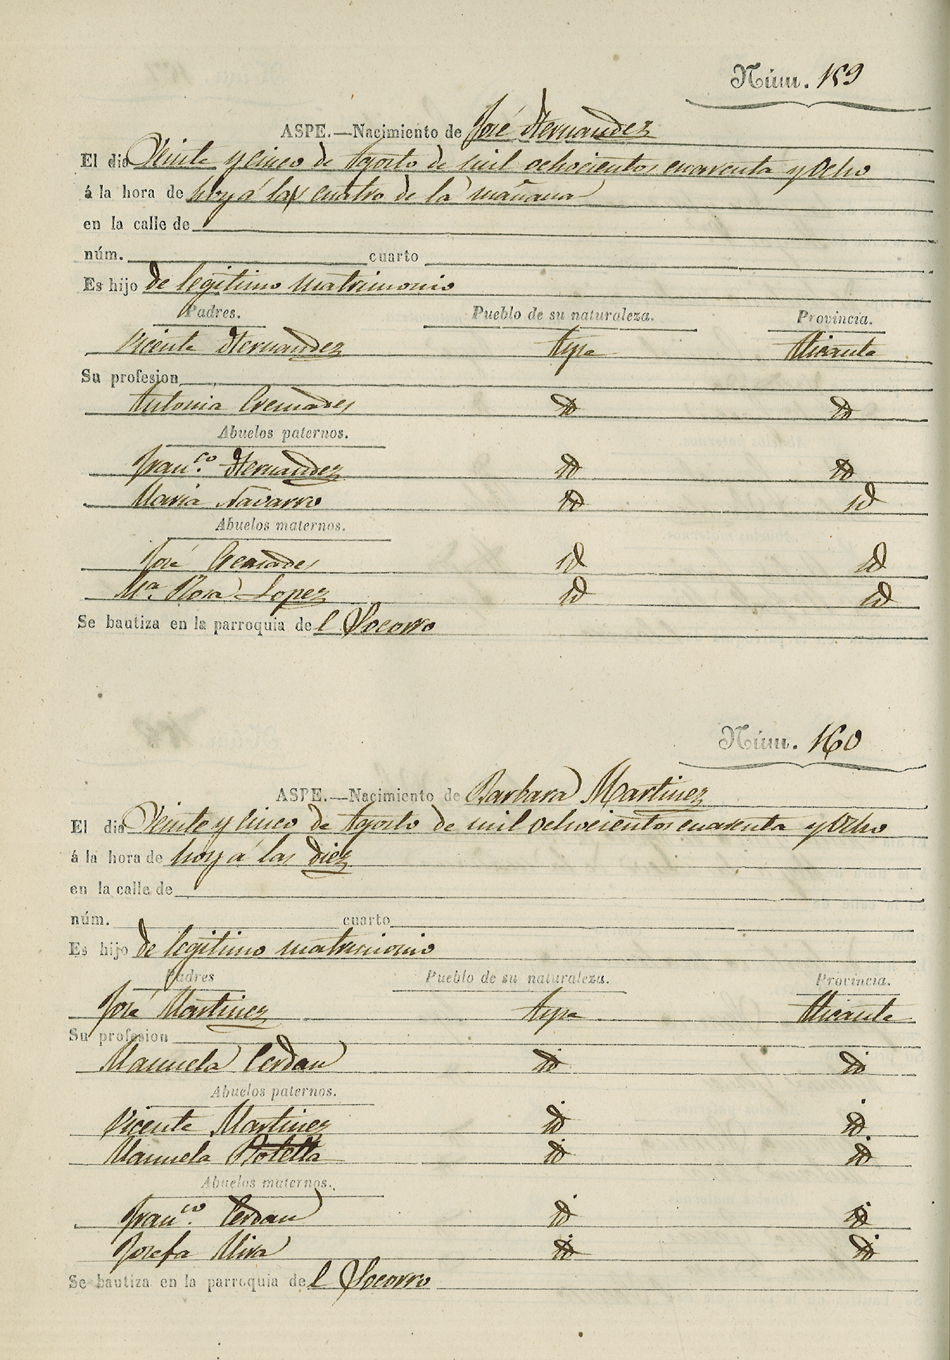 Núm. 159
ASPE.—Nacimiento de José Hernandez
El dia Veinte y cinco de Agosto de mil ochocientos cuarenta y Ocho
á la hora de hoy á las cuatro de la mañana
en la calle de
núm. cuarto
Es hijo de legitimo matrimonio
Padres. Pueblo de su naturaleza. Provincia.
Vicente Hernandez Aspe Alicante
Su profesion
Antonia Cremades id id
Abuelos paternos.
Fran.co Hernandez id id
Maria Navarro id id
Abuelos maternos.
José Cremades id id
Ma. Rosa Lopez id id
Se bautiza en la parroquia del Socorro
Núm. 160
ASPE.—Nacimiento de Barbara Martinez
El dia Veinte y cinco de Agosto de mil ochocientos cuarenta y Ocho
á la hora de hoy á las diez
en la calle de
núm. cuarto
Es hijo de legitimo matrimonio
Padres Pueblo de su naturaleza. Provincia.
José Martinez Aspe Alicante
Su profesion
Manuela Cerdan id id
Abuelos paternos.
Vicente Martinez id id
Manuela Botella id id
Abuelos maternos.
Fran.co Cerdan id id
Josefa Mira id id
Se bautiza en la parroquia del Socorro